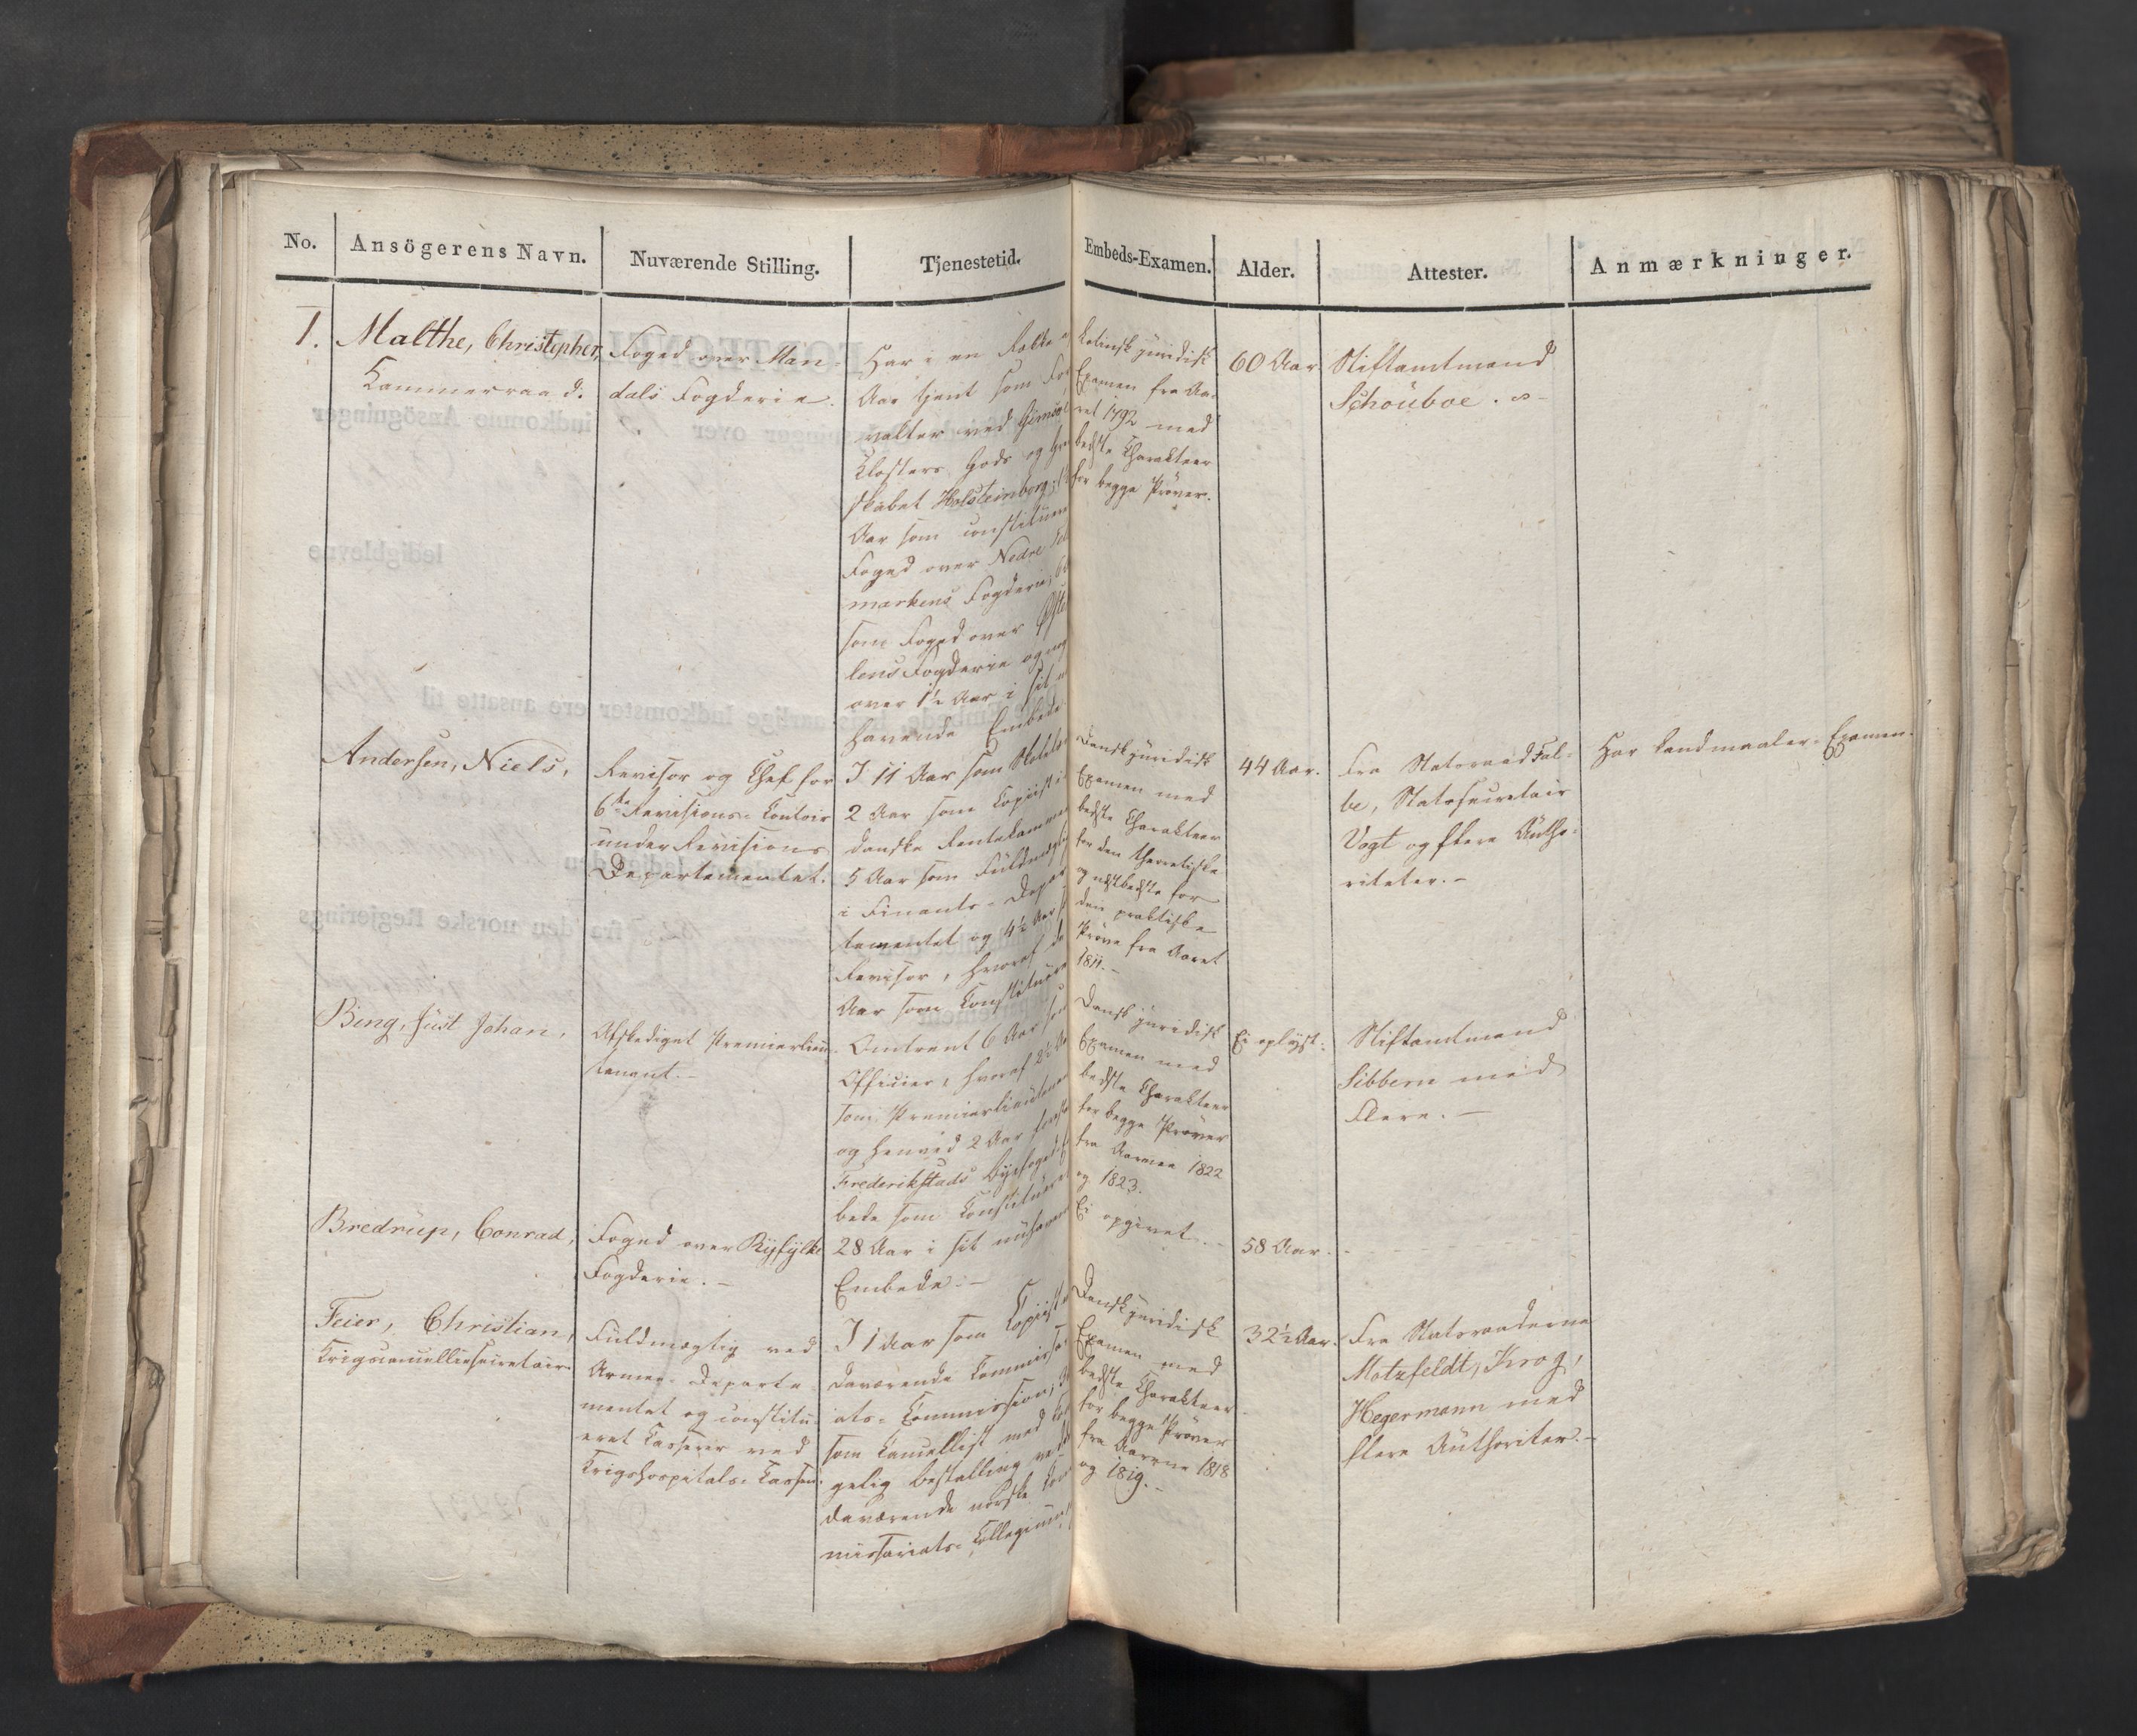 No.
Ansögerens Navn.
Nuværende Stilling.
Tjenestetid.
Embeds-Examen.
Alder.
Attester.
Anmærkninger.
1.
Malthe, Christopher,
Kammerraad.
Foged over Man-
dals Fogderie.
Har i en Række
Aar tjent som For
valter ved Gimsøe
Klosters Gods og Gre
skabet Holsteinborg;
Aar som constitueret
Foged over Nedre Tel
markens Fogderie;
som Foged over Øste
lens Fogderie og nog
over 1½ Aar i sit n
havende Embede
Latinsk juridisk
Examen fra Aa-
ret 1792 med
bedste Charakteer
for begge Prøver.
60 Aar.
Stiftamtmand
Schouboe.
Andersen, Niels,
Revisor og Chef for
6te Revisions-Contoir
under Revisions
Departementet.
I 11 Aar som
2 Aar som Copiist i
danske Rentekammer
5 Aar som Fuldmægtig
i Finants-Depar
tementet og 4½ Aar
Revisor, hvoraf
Aar som Constitueret
Dansk juridisk
Examen med
bedste Charakteer
for den theoretiske
og næstbedste for
den praktiske
Prøve fra Aaret
1811.-
44 Aar.
Fra Statsraad Fal-
be, Statssecretair
Vogt og flere Autho-
riteter.-
Har Landmaaler-Examen.
Bing, Just Johan,
Afskediget Premierlieu-
tenant.-
Omtrent 6 Aar som
Officier, hvoraf 2½ Aar
som Premierlieutenan
og henved 2 Aar
Frederikstads Byefoged-
bede som Constitueret
Dansk juridisk
Examen med
bedste Charakteer
for begge Prøver
fra Aarene 1822
og 1823.
Ei oplyst.
Stiftamtmand
Sibbern med
Flere.-
Bredrup, Conrad,
Foged over Ryfylke
Fogderie.-
28 Aar i sit nuhavend
Embede.-
Ei opgivet.-
58 Aar.
Feier, Christian,
Krigscancelliesecretair.
Fuldmægtig ved
Armee-Departe
mentet og constitu-
eret Casserer ved
Krigshospitals-Cassen.
I 1 Aar som Copiist
daværende Commissa
ats-Commission;
som Cancellist med Kon
gelig Bestalling ved
daværende norske Com
missariats-Collegium
Dansk juridisk
Examen med
bedste Charakteer
for begge Prøver
fra Aarene 1818
og 1819.-
32½ Aar.
Fra Statsraaderne
Motzfeldt, Krog,
Hegermann med
flere Authoriter.-